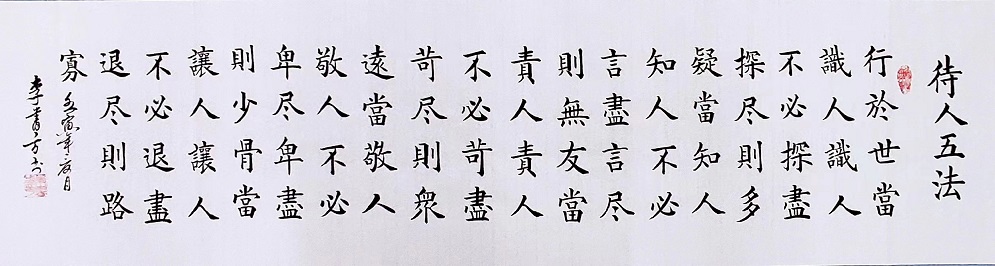 待人五法
行於世當
識人識人
不必探盡
探尽則多
疑當知人
知人不必
言盡言尽
則無友當
責人責人
不必苛盡
苛尽則衆
遠當敬人
敬人不必
卑尽卑盡
則少骨當
讓人讓人
不必退盡
退尽則路
寡
壬寅年月
李青方书